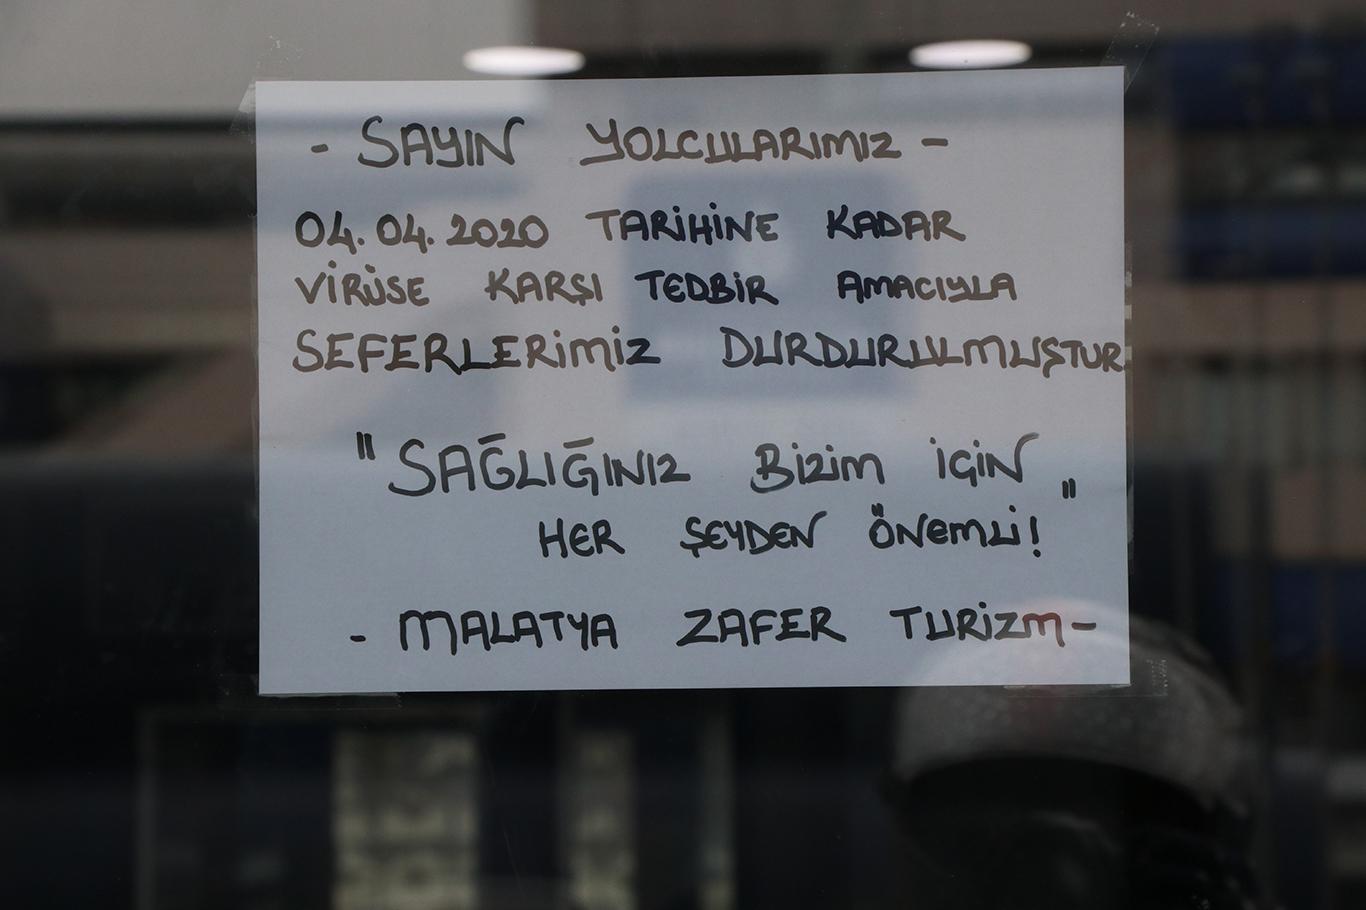 - SAYIN YOLCULARIMIZ -
04.04.2020 TARİHİNE KADAR
VİRÜSE KARŞI TEDBİR AMACIYLA
SEFERLERİMİZ DURDURULMUŞTUR.
"SAĞLIĞINIZ BİZİM İÇİN
HER ŞEYDEN ÖNEMLİ!"
- MALATYA ZAFER TURİZM -